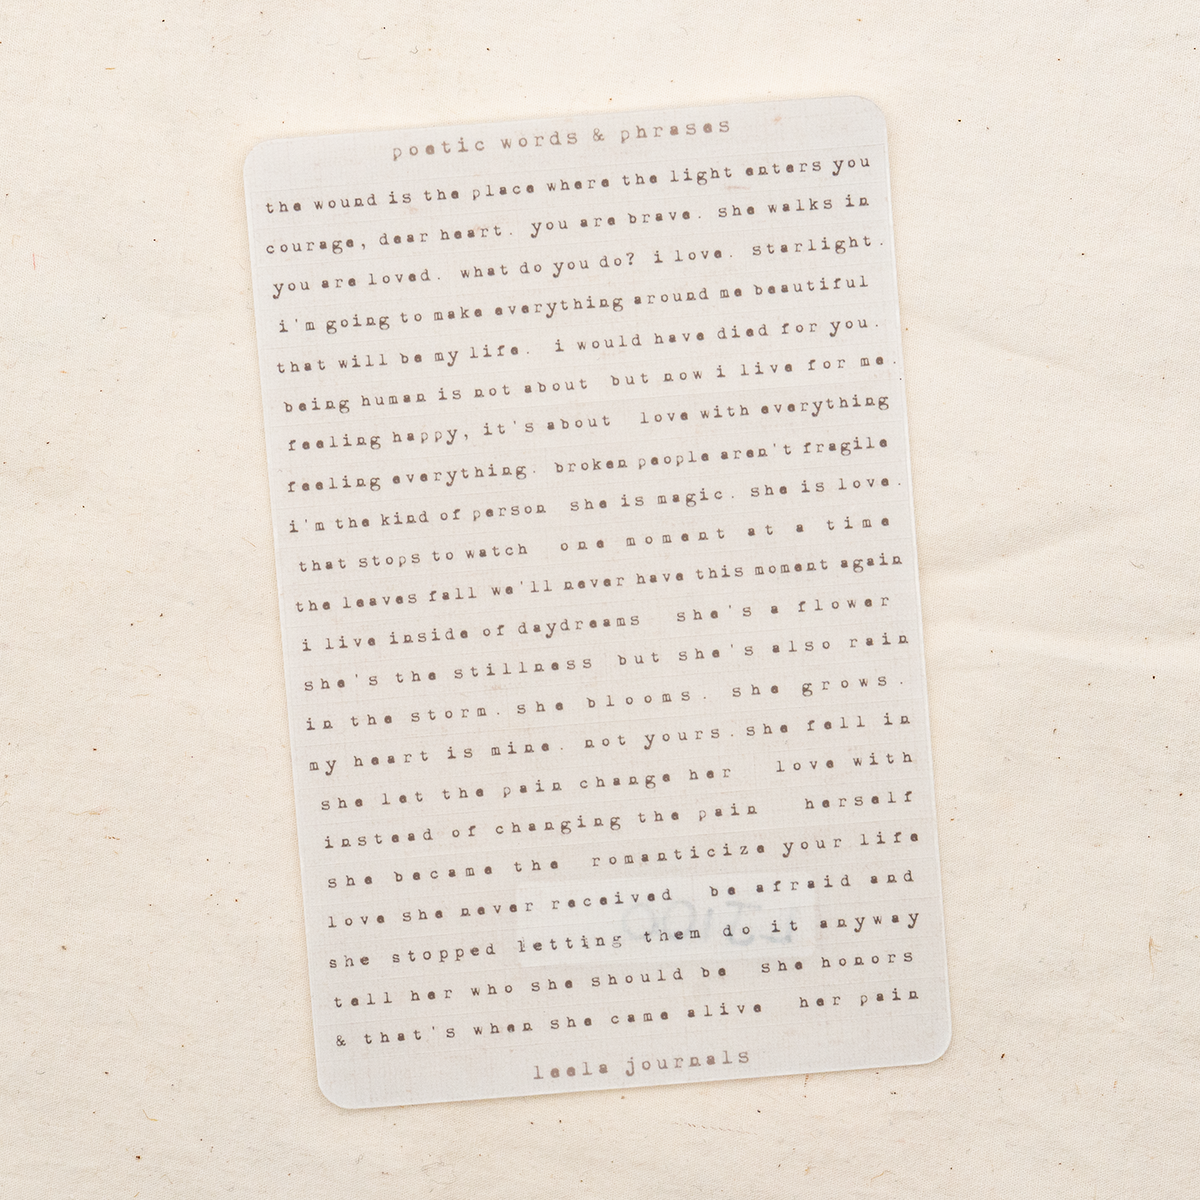 poetic words & phrases
the wound is the place where the light enters you
courage, dear heart. you are brave. she walks in
you are loved. what do you do? i love. starlight.
i'm going to make everything around me beautiful
that will be my life. i would have died for you.
being human is not about but now i live for me.
feeling happy, it's about love with everything
feeling everything. broken people aren't fragile
i'm the kind of person she is magic. she is love.
that stops to watch one moment at a time
the leaves fall we'll never have this moment again
i live inside of daydreams she's a flower
she's the stillness but she's also rain
in the storm. she blooms. she grows.
my heart is mine. not yours. she fell in
she let the pain change her love with
instead of changing the pain herself
she became the romanticize your life
love she never received be afraid and
she stopped letting them do it anyway
tell her who she should be she honors
& that's when she came alive her pain
leela journals